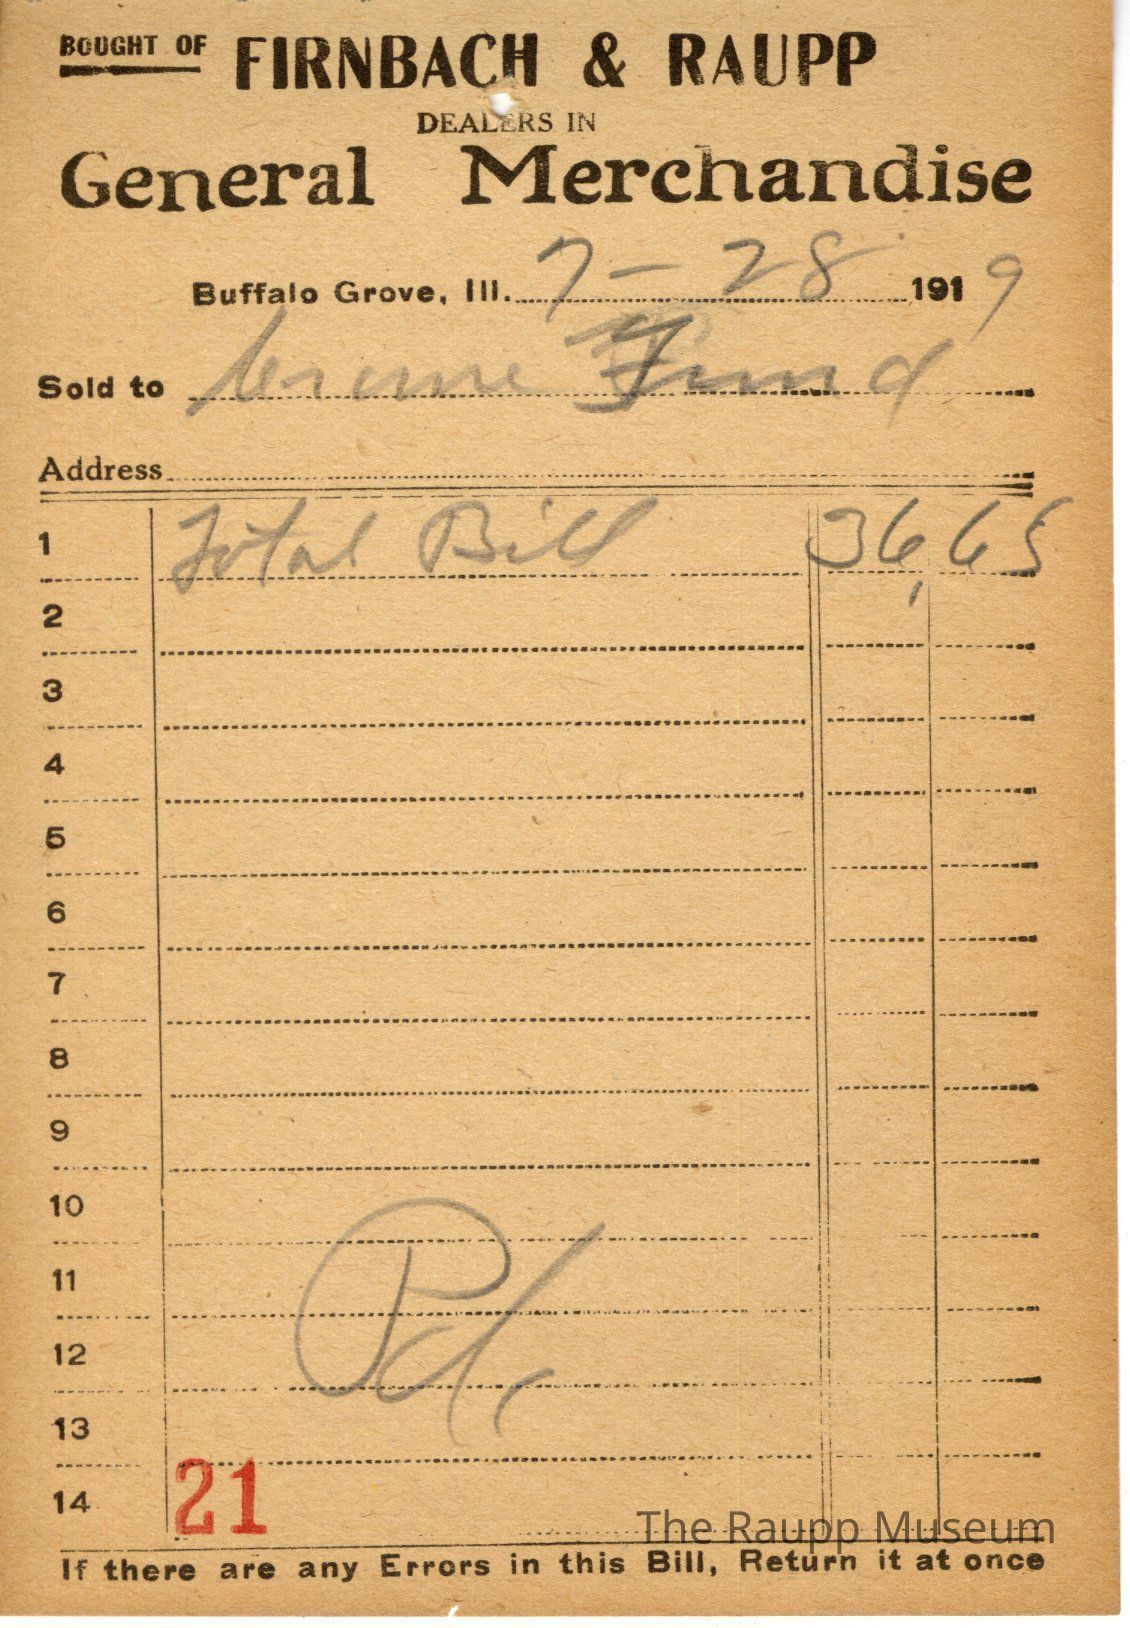 BOUGHT OF FIRNBACH & RAUPP
DEALERS IN
General Merchandise
Buffalo Grove, Ill. 7-28 1919
Sold to
Address
1 Total Bill 36,65
2
3
4
5
6
7
8
9
10
11
12
13
Pd.
14 21
The Raupp Museum
If there are any Errors in this Bill, Return it at once